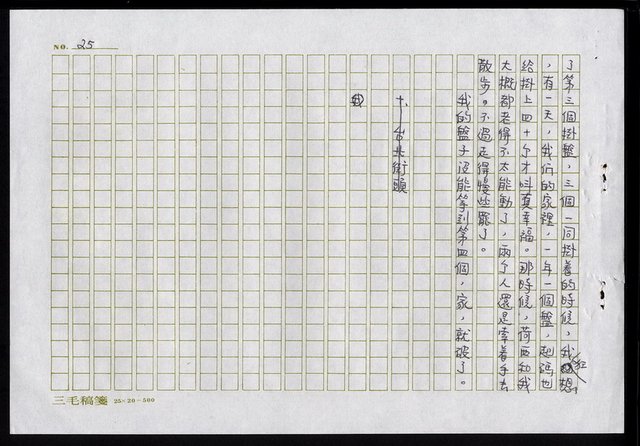 NO. 25
了第三個掛盤，三個一同掛着的時候，我狂想
，有一天，我們的家裡，一年一個盤，起碼也
給掛上四十个才叫真幸福。那時候，荷西和我
大概都老得不太能動了，兩个人還是牽着手去
散步。不過走得慢些罷了。
我的盤子沒能等到第四個，家，就破了。
台北街頭
三毛稿箋 25×20=500